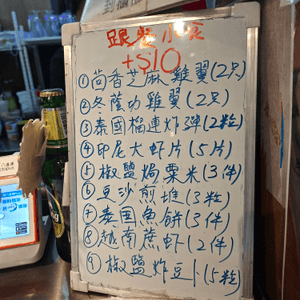 跟餐小食
+$10
①茴香芝麻雞翼(2只)
②冬蔭功雞翼(2只)
③泰國榴連炸彈(2粒)
④印尼大虾片(5片)
⑤椒鹽焗粟米(3件)
⑥豆沙煎堆(3粒)
⑦泰国魚餅(3件)
⑧越南蔗虾(2件)
⑨椒鹽炸豆卜(5粒)